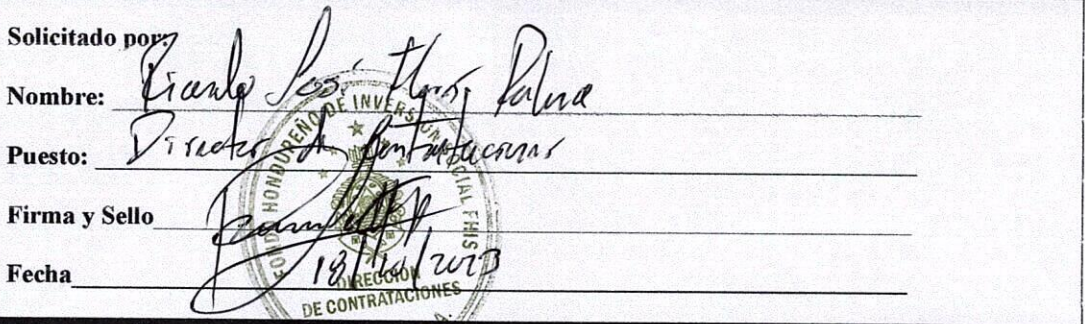 Solicitado por:
Nombre: Ricardo José Palma
Puesto: Director de Contrataciones
Firma y Sello
Fecha 18/10/2023
FONDO HONDUREÑO DE INVERSIÓN SOCIAL FHIS
DIRECCIÓN
DE CONTRATACIONES